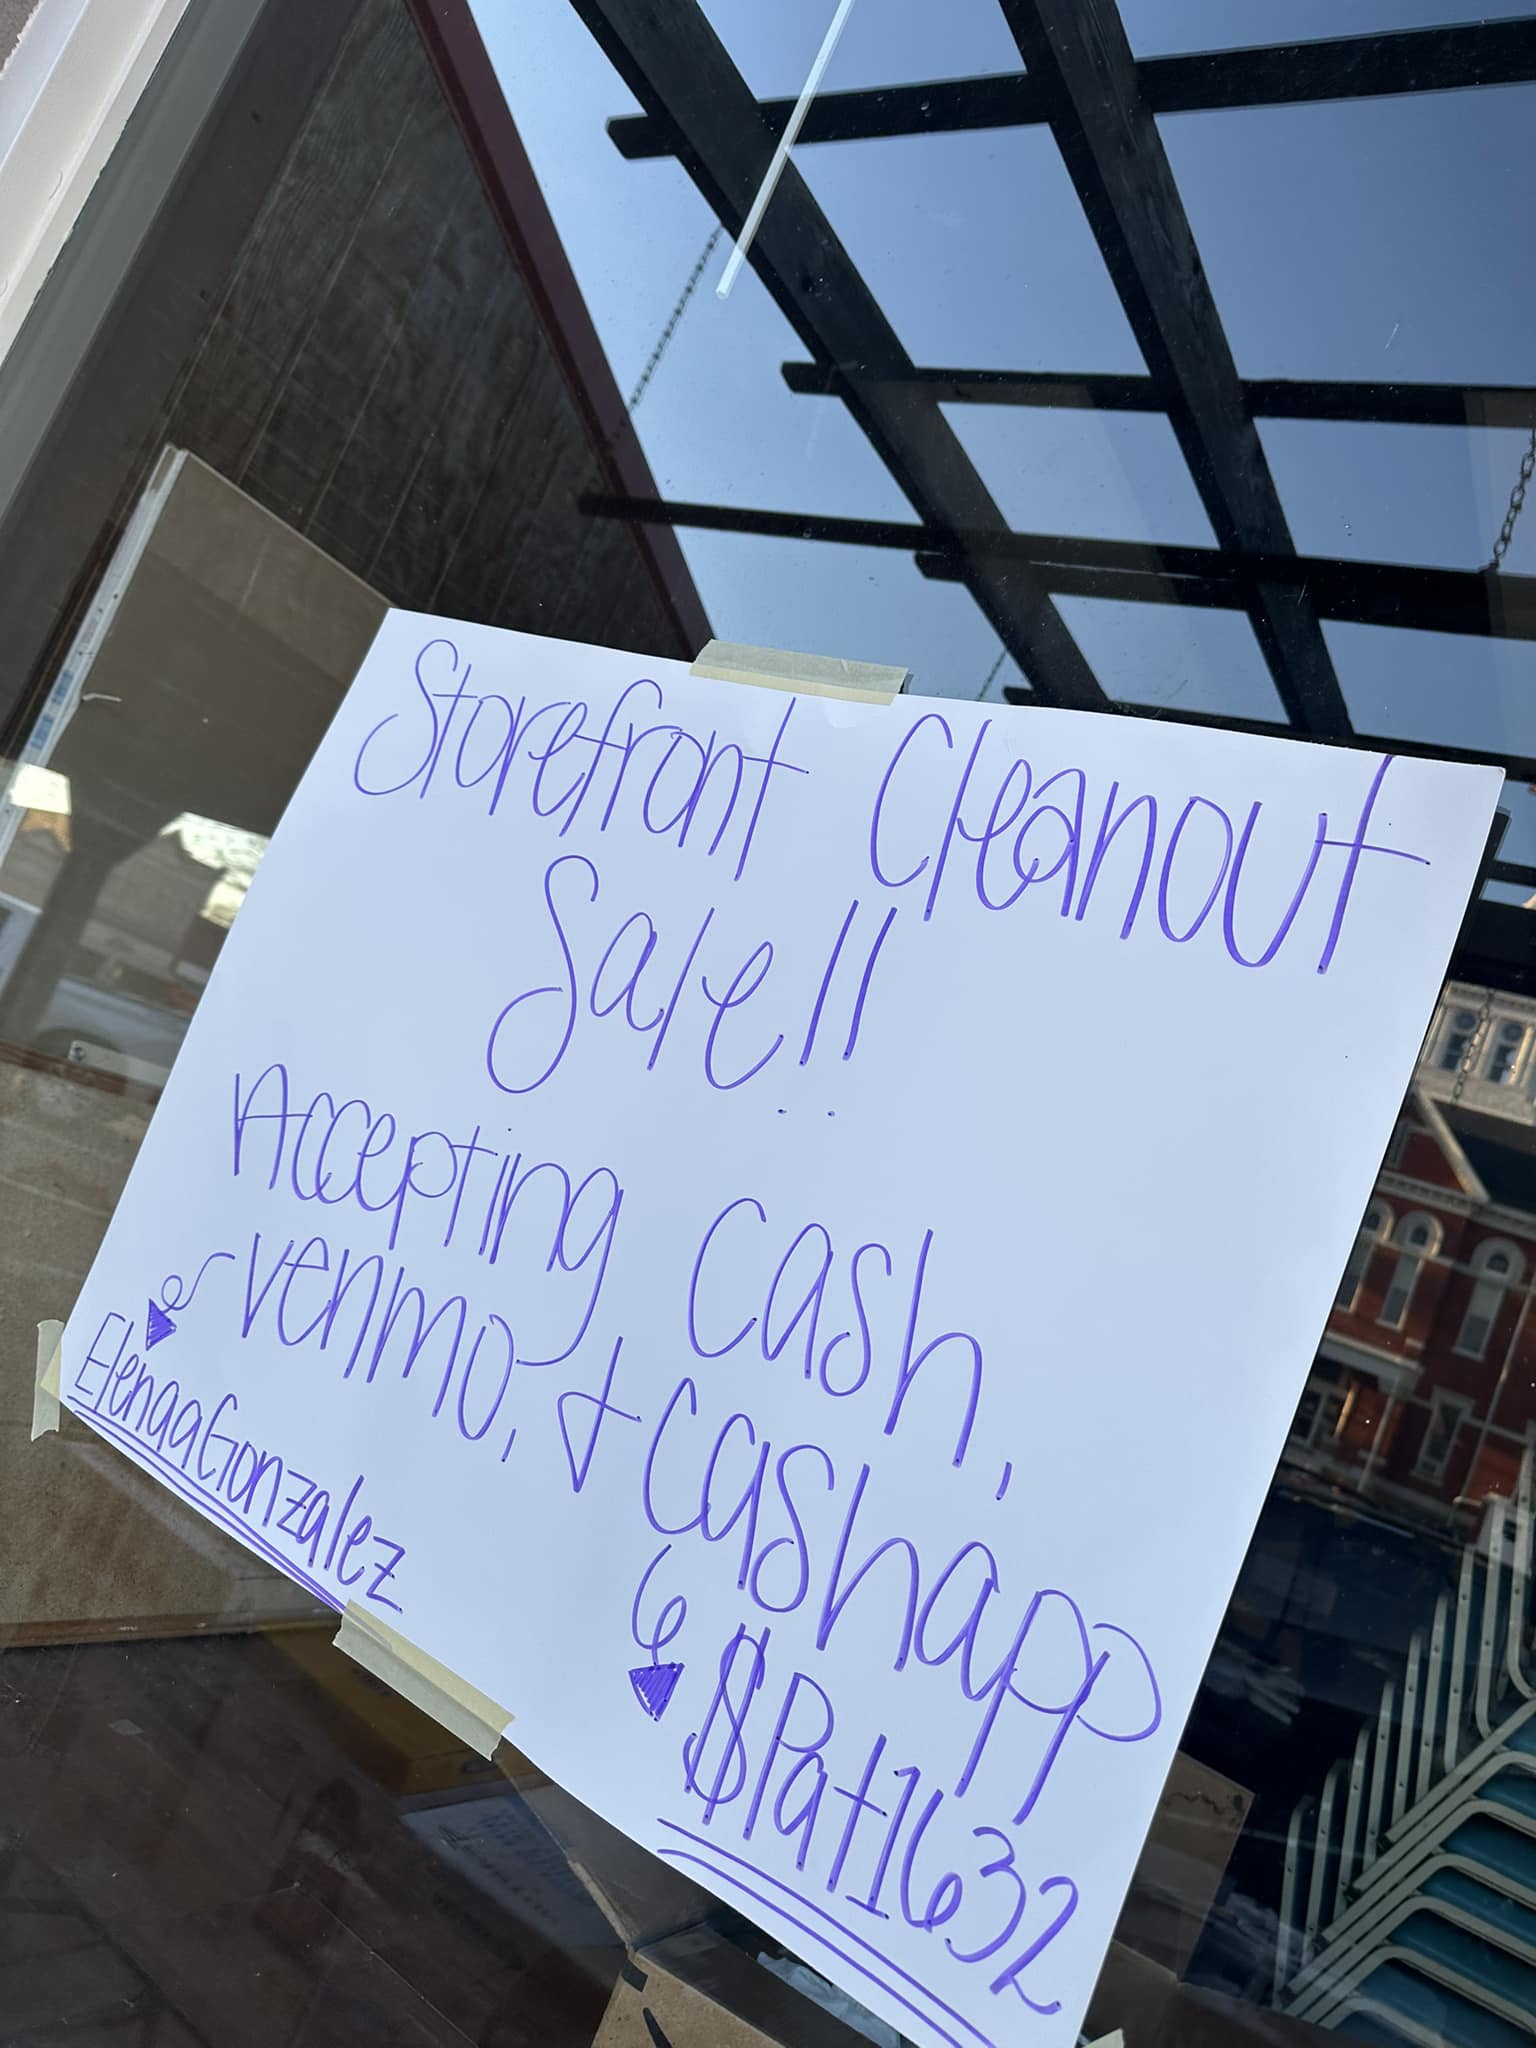 Storefront Cleanout
Sale!!
Accepting cash,
venmo, & cashapp
ElenaaGonzalez
$Pat1632